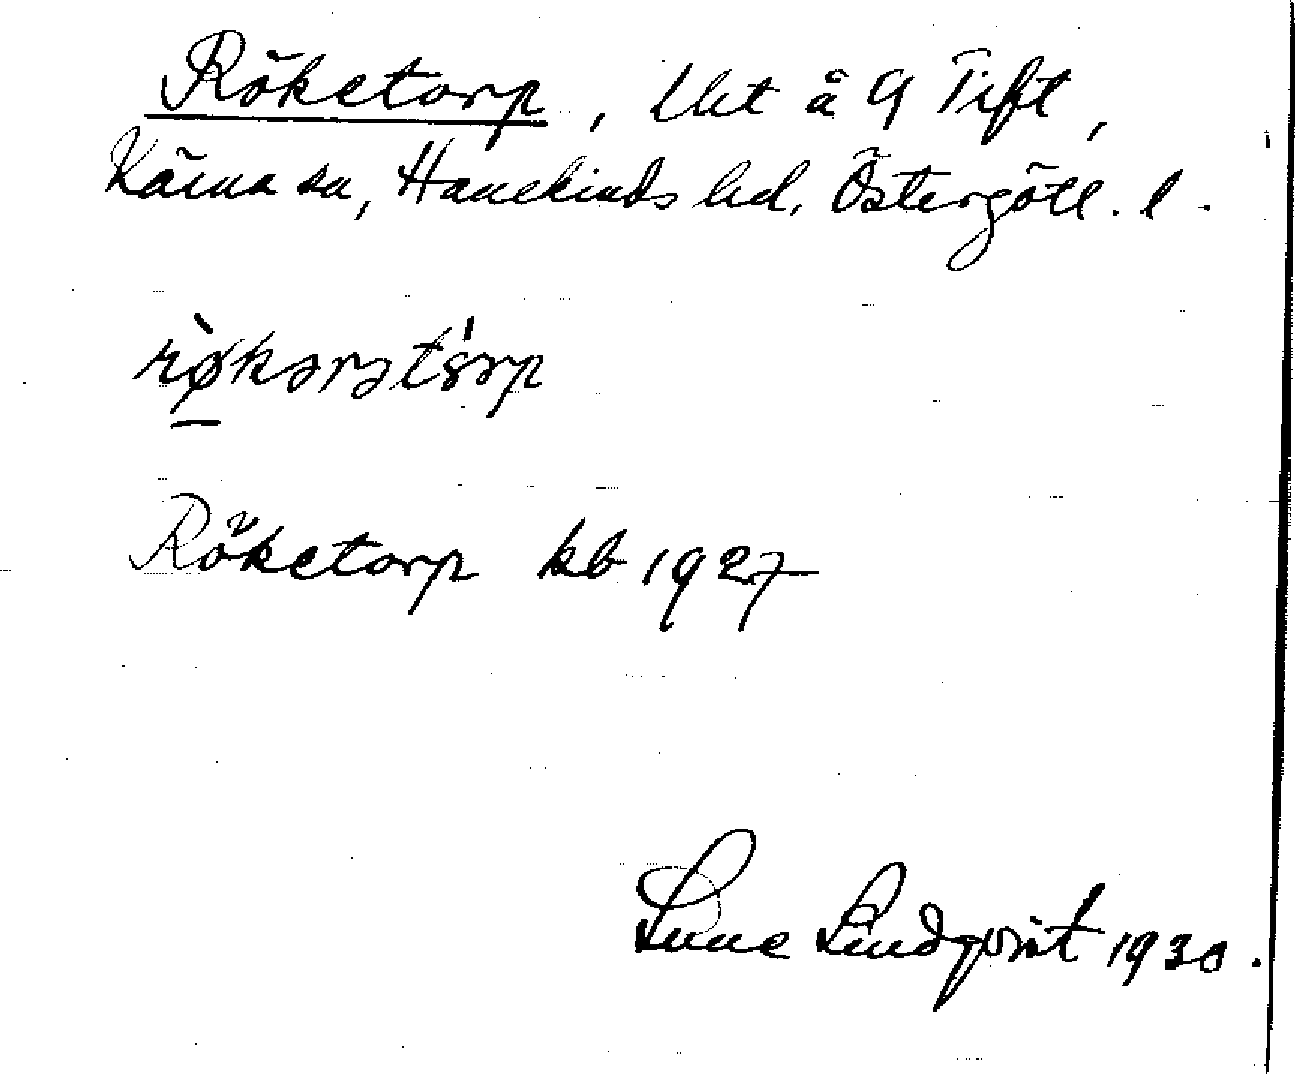 Röketorp, Utst å G Tift,
Kärna sn, Hanekinds hd. Östergötl. l.
rø̀kərətˈɔrp
Röketorp kb 1927
Sune Lindqvist 1930.